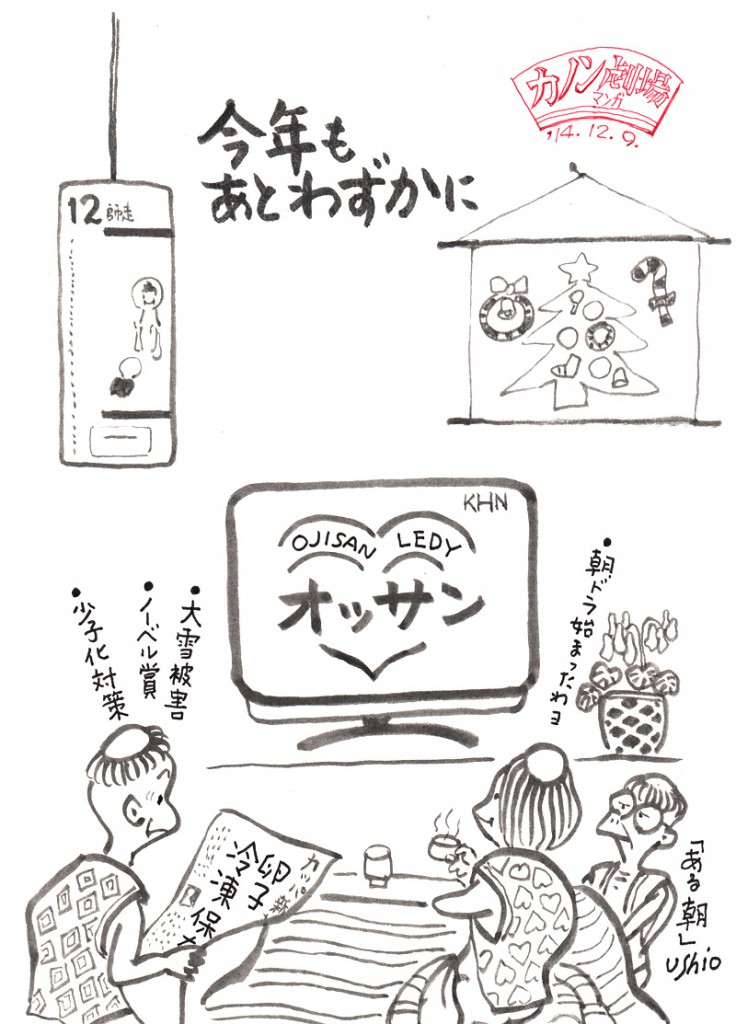 カノン劇場
マンガ
'14.12.9.
今年も
あとわずかに
12 師走
KHN
OJISAN LEDY
オッサン
・朝ドラ始まったわヨ
・大雪被害
・ノーベル賞
・少子化対策
カッパ新
卵子
冷凍保
「ある朝」
ushio